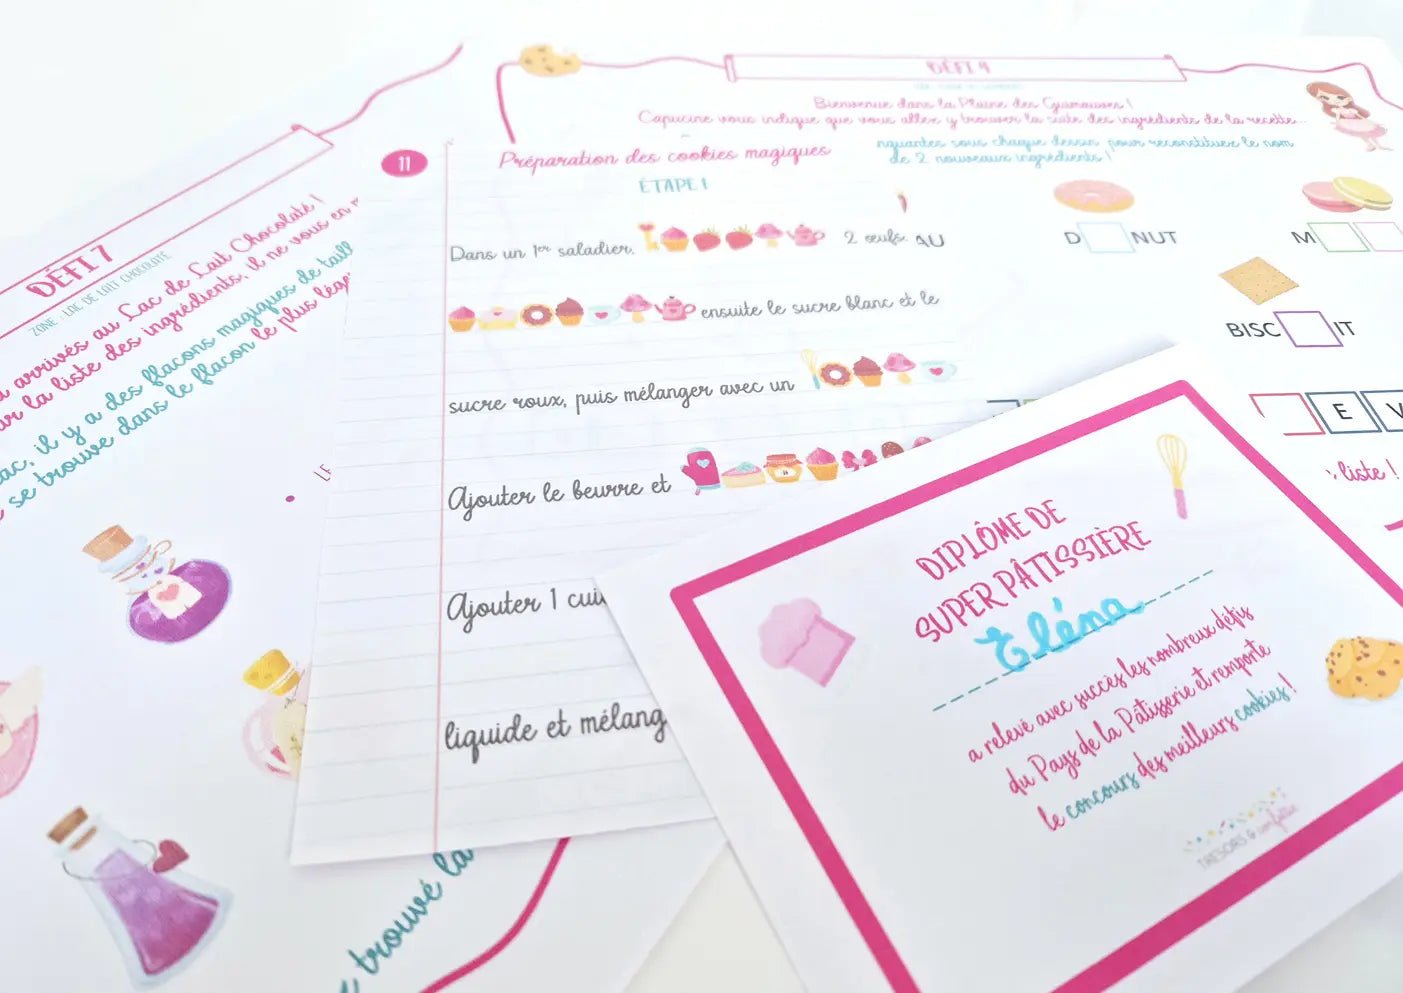 DÉFI 7
ZONE : LAC DE LAIT CHOCOLATÉ
arrivés au Lac de Lait Chocolaté !
la liste des ingrédients, il ne vous en
il y a des flacons magiques de
se trouve dans le flacon le plus
trouvé la
11
Préparation des cookies magiques
ÉTAPE 1
Dans un 1er saladier, 2 œufs. AU
ensuite le sucre blanc et le
sucre roux, puis mélanger avec un
Ajouter le beurre et
Ajouter 1
liquide et
DÉFI 9
Bienvenue dans la Plaine des
Capucine vous indique que vous allez y trouver la suite des ingrédients de la recette...
sous chaque dessin pour reconstituer le nom
de 2 nouveaux ingrédients !
D NUT
M
BISC IT
E V
liste !
DIPLÔME DE
SUPER PÂTISSIÈRE
Eléna
a relevé avec succès les nombreux défis
du Pays de la Pâtisserie et remporte
le concours des meilleurs cookies !
TRÉSORS & confettis